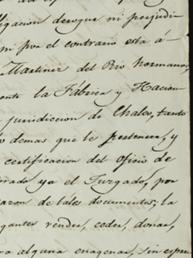 ligacion derogue ni perjudi
m por el contrario esta á
Martinez del Rio hermanos
ente la Fábrica y Hacien
jurisdiccion de Chalco, tando
demas que le pertenece, y
certificacion del Oficio de
rado ya el Juzgado, por
razon de tales documentos; la
gantes vender, ceder, donar,
ra alguna enagenar, sin espre